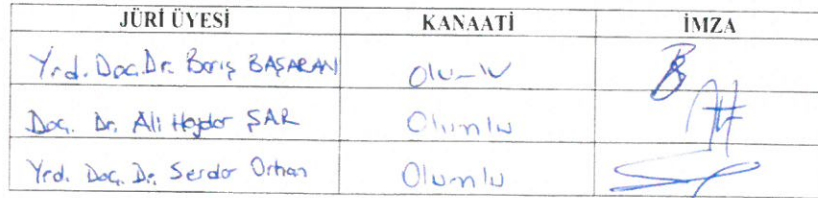 JÜRİ ÜYESİ KANAATİ İMZA
Yrd. Doç. Dr. Barış BAŞARAN Olumlu
Doç. Dr. Ali Haydar ŞAR Olumlu
Yrd. Doç. Dr. Serdar Orhan Olumlu